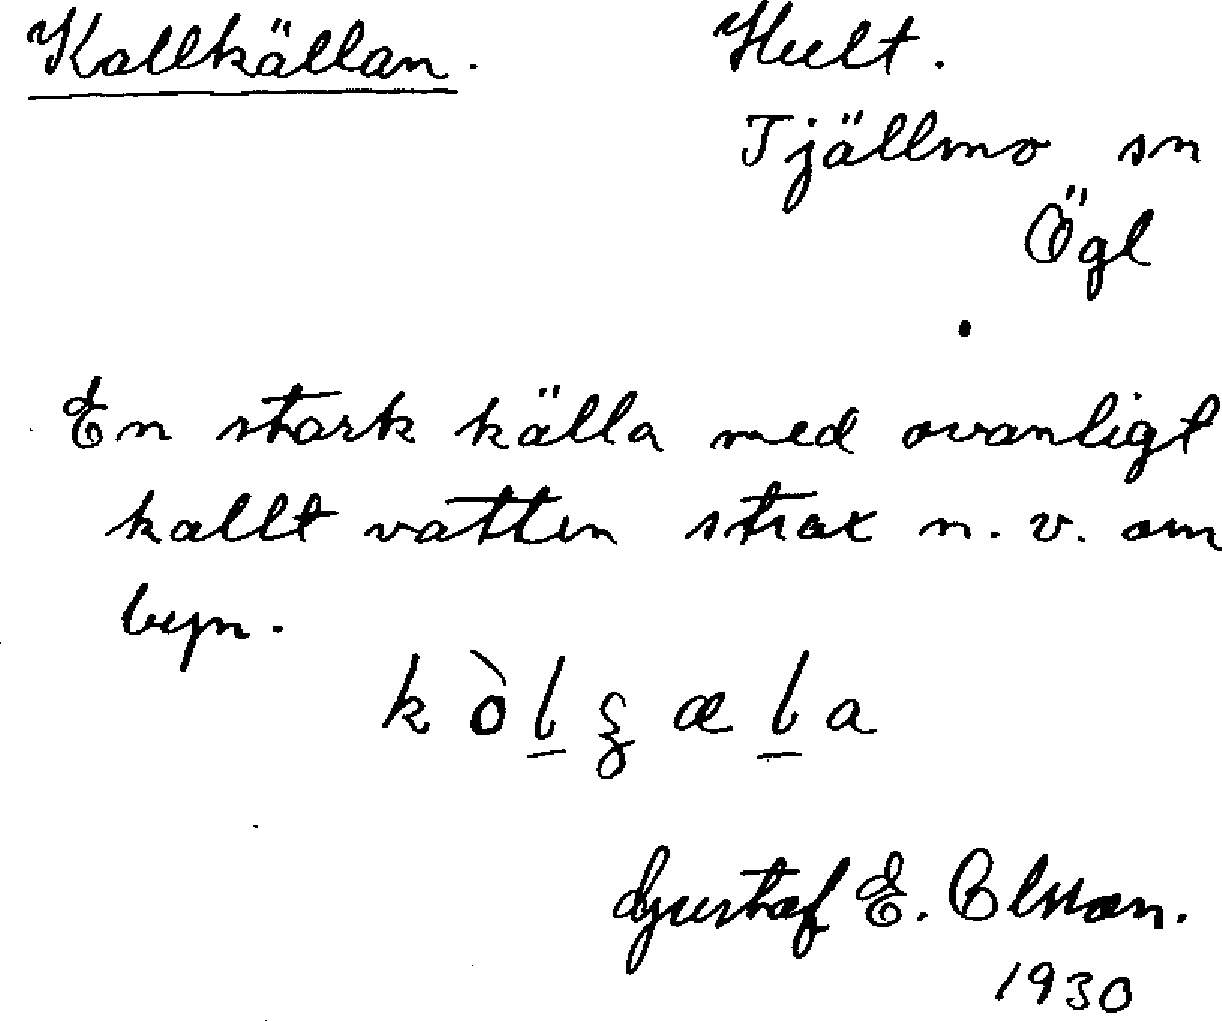 Kallkällan. Hult.
Tjällmo sn
Ögl
En stark källa med ovanligt
kallt vatten strax n. v. om
byn.
k ò l̲ ȿ æ l̲ a
Gustaf E. Olsson.
1930